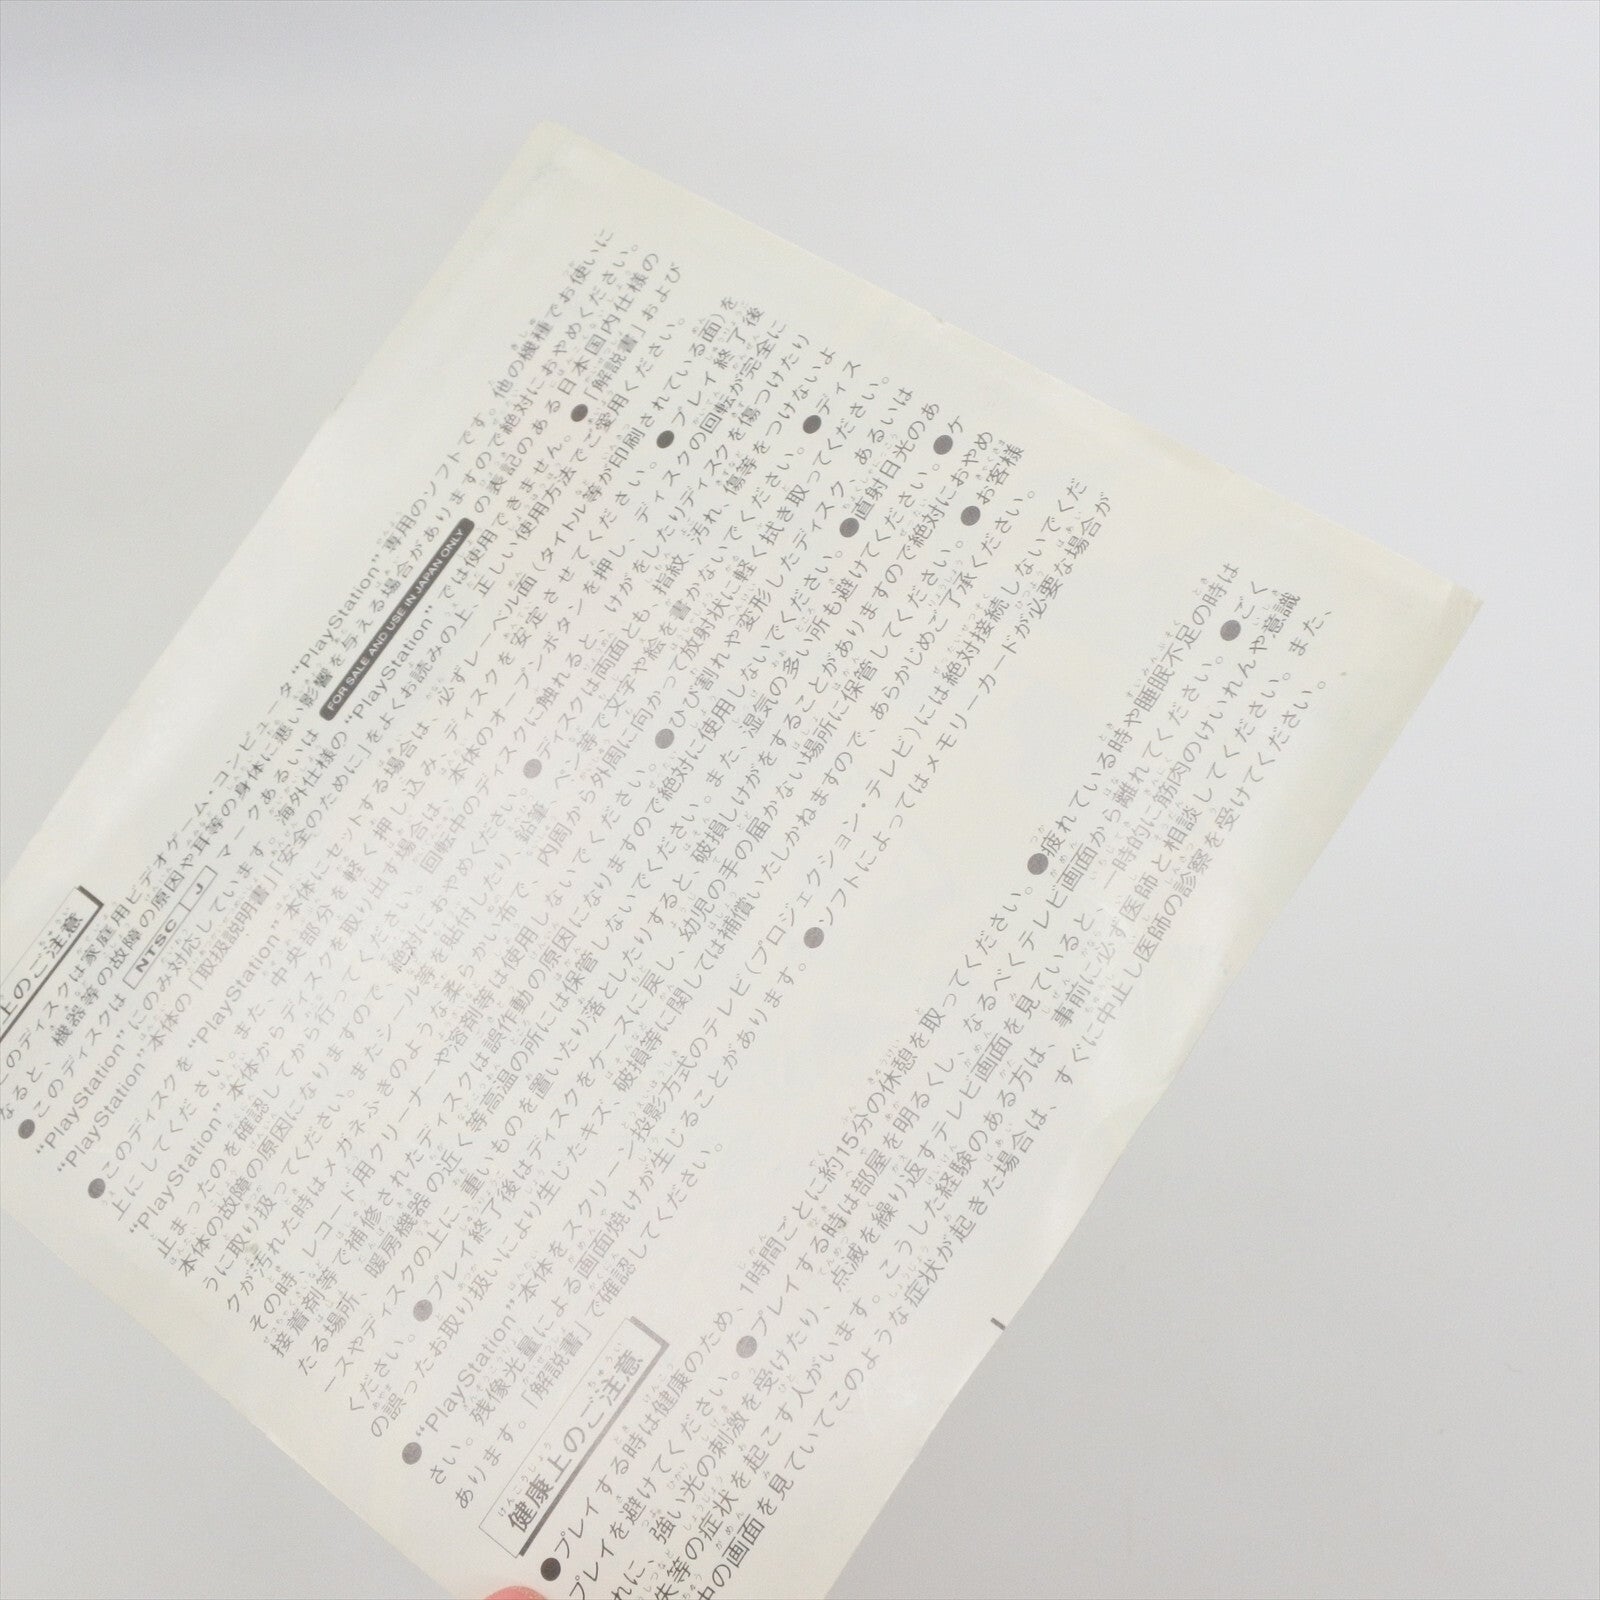 上のご注意
このディスクは家庭用ビデオゲーム・コンピュータ“PlayStation”専用のソフトです。他の機種でお使いに
なると、機器等の故障の原因や耳等の身体に悪い影響を与える場合がありますので絶対におやめください。
●このディスクは NTSC J マークあるいは FOR SALE AND USE IN JAPAN ONLY の表記のある日本国内仕様の
“PlayStation”にのみ対応しています。海外仕様の“PlayStation”では使用できません。●「解説書」および
“PlayStation”本体の「取扱説明書」「安全のために」をよくお読みの上、正しい使用方法でご愛用ください。
●このディスクを“PlayStation”本体にセットする場合は、必ずレーベル面（タイトル等が印刷されている面）を
上にしてください。また、中央部分を軽く押し込み、ディスクを安定させてください。●プレイ終了後
“PlayStation”本体からディスクを取り出す場合は、本体のオープンボタンを押し、ディスクの回転が完全に
止まったのを確認してから行ってください。回転中のディスクに触れると、けがをしたりディスクを傷つけたり
本体の故障の原因になりますので、絶対におやめください。●ディスクは両面とも、指紋、汚れ、傷等をつけないよ
うに取り扱ってください。またシール等を貼付したり、鉛筆、ペン等で文字や絵を書かないでください。●ディス
クが汚れた時はメガネふきのような柔らかい布で、内周から外周に向かって放射状に軽く拭き取ってください。
その時、レコード用クリーナーや溶剤等は使用しないでください。●ひび割れや変形したディスク、あるいは
接着剤等で補修されたディスクは誤作動の原因になりますので絶対に使用しないでください。●直射日光のあ
たる場所、暖房機器の近く等高温の所には保管しないでください。また、湿気の多い所も避けてください。●ケ
ースやディスクの上に、重いものを置いたり落としたりすると、破損しけがをすることがありますので絶対におやめ
ください。●プレイ終了後はディスクをケースに戻し、幼児の手の届かない場所に保管してください。●お客様
の誤ったお取り扱いにより生じたキズ、破損等に関しては補償いたしかねますので、あらかじめご了承ください。
●“PlayStation”本体をスクリーン投影方式のテレビ（プロジェクション・テレビ）には絶対接続しないでくだ
さい。残像光量による画面焼けが生じることがあります。●ソフトによってはメモリーカードが必要な場合が
あります。「解説書」で確認してください。
健康上のご注意
●プレイする時は健康のため、1時間ごとに約15分の休憩を取ってください。●疲れている時や睡眠不足の時は
プレイを避けてください。●プレイする時は部屋を明るくし、なるべくテレビ画面から離れてください。●ごく
れに、強い光の刺激を受けたり、点滅を繰り返すテレビ画面を見ていると、一時的に筋肉のけいれんや意識
失等の症状を起こす人がいます。こうした経験のある方は、事前に必ず医師と相談してください。また、
中の画面を見ていてこのような症状が起きた場合は、すぐに中止し医師の診察を受けてください。